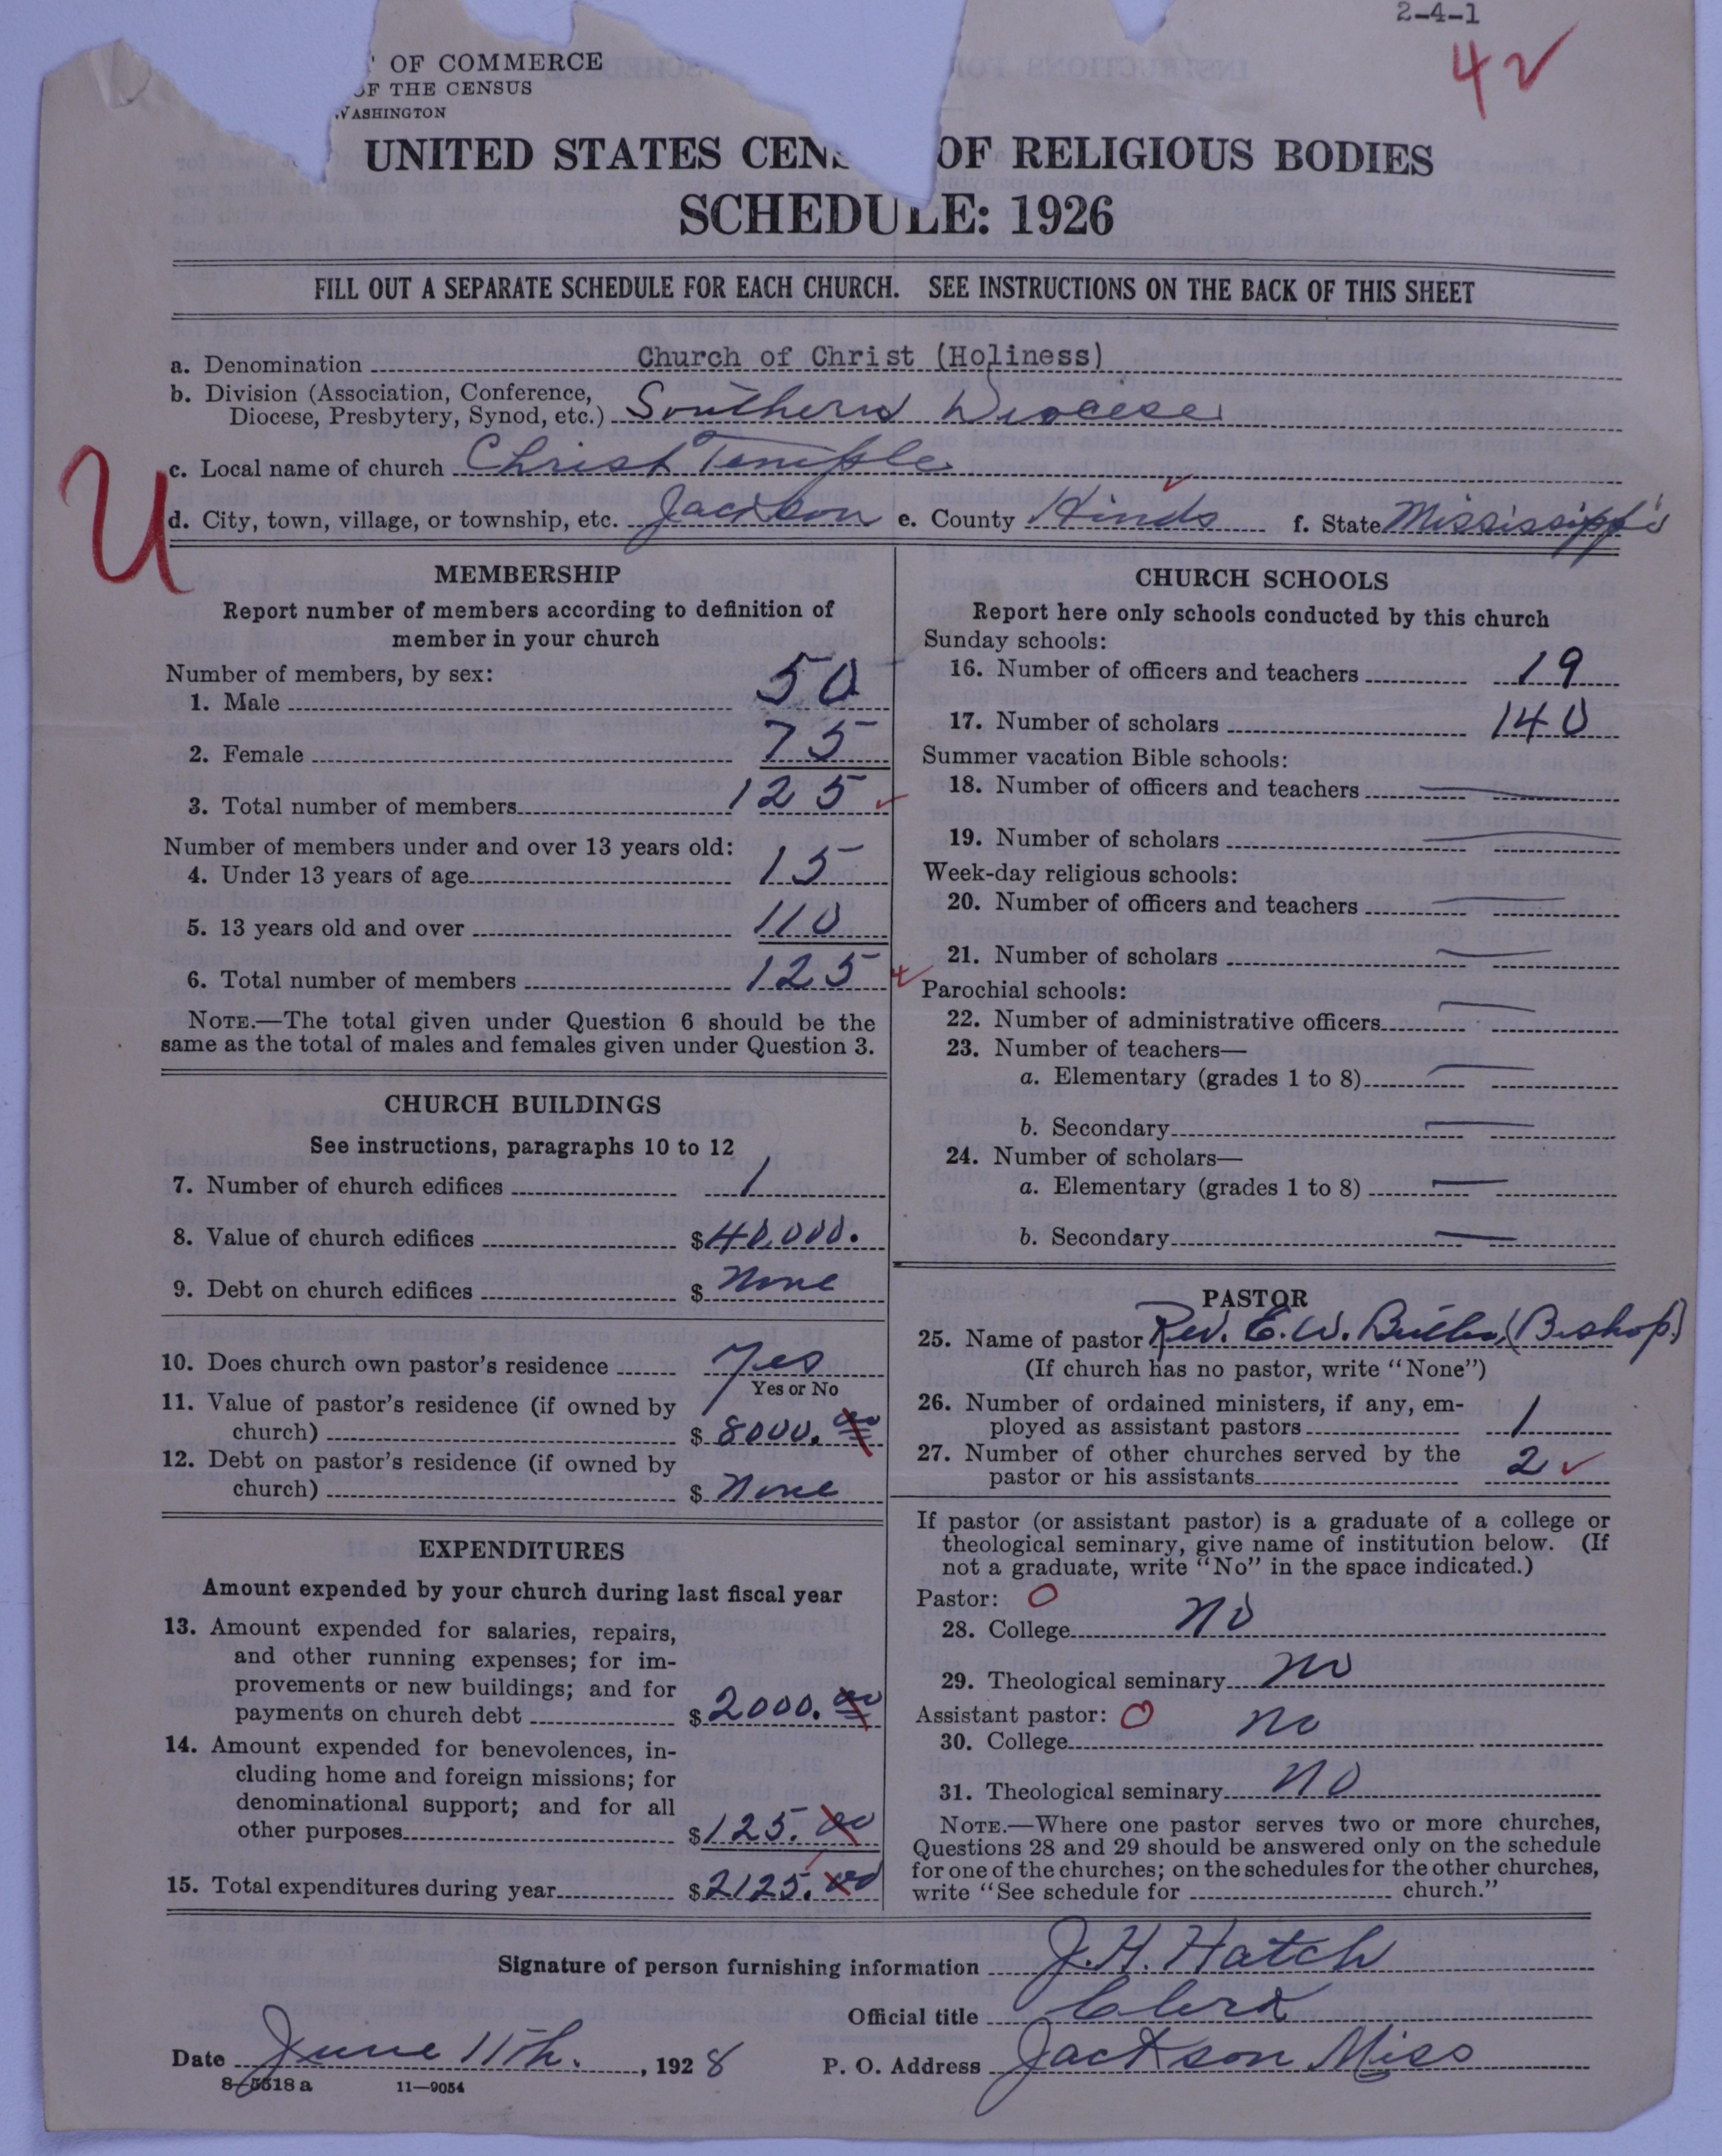 2-4-1
42
OF COMMERCE
OF THE CENSUS
WASHINGTON
UNITED STATES CENS OF RELIGIOUS BODIES
SCHEDULE: 1926
FILL OUT A SEPARATE SCHEDULE FOR EACH CHURCH. SEE INSTRUCTIONS ON THE BACK OF THIS SHEET
a. Denomination Church of Christ (Holiness)
b. Division (Association, Conference,
Diocese, Presbytery, Synod, etc.) Southern Diocese
c. Local name of church Christ Temple
U
d. City, town, village, or township, etc. Jackson e. County Hinds f. State Mississippi
MEMBERSHIP
Report number of members according to definition of
member in your church
Number of members, by sex:
1. Male 50
2. Female 75
3. Total number of members 125
Number of members under and over 13 years old:
4. Under 13 years of age 15
5. 13 years old and over 110
6. Total number of members 125
NOTE.—The total given under Question 6 should be the
same as the total of males and females given under Question 3.
CHURCH BUILDINGS
See instructions, paragraphs 10 to 12
7. Number of church edifices 1
8. Value of church edifices $40,000.
9. Debt on church edifices $ None
10. Does church own pastor's residence Yes
Yes or No
11. Value of pastor's residence (if owned by
church) $ 8000. 00
12. Debt on pastor's residence (if owned by
church) $ None
EXPENDITURES
Amount expended by your church during last fiscal year
13. Amount expended for salaries, repairs,
and other running expenses; for im-
provements or new buildings; and for
payments on church debt $ 2000. 00
14. Amount expended for benevolences, in-
cluding home and foreign missions; for
denominational support; and for all
other purposes $ 125. 00
15. Total expenditures during year $ 2125. 00
CHURCH SCHOOLS
Report here only schools conducted by this church
Sunday schools:
16. Number of officers and teachers 19
17. Number of scholars 140
Summer vacation Bible schools:
18. Number of officers and teachers —
19. Number of scholars —
Week-day religious schools:
20. Number of officers and teachers —
21. Number of scholars —
Parochial schools:
22. Number of administrative officers —
23. Number of teachers—
a. Elementary (grades 1 to 8) —
b. Secondary —
24. Number of scholars—
a. Elementary (grades 1 to 8) —
b. Secondary —
PASTOR
25. Name of pastor Rev. E. W. (Bishop)
(If church has no pastor, write "None")
26. Number of ordained ministers, if any, em-
ployed as assistant pastors 1
27. Number of other churches served by the
pastor or his assistants 2
If pastor (or assistant pastor) is a graduate of a college or
theological seminary, give name of institution below. (If
not a graduate, write "No" in the space indicated.)
Pastor: O
28. College no
29. Theological seminary no
Assistant pastor: O
30. College no
31. Theological seminary no
NOTE.—Where one pastor serves two or more churches,
Questions 28 and 29 should be answered only on the schedule
for one of the churches; on the schedules for the other churches,
write "See schedule for church."
Signature of person furnishing information J. H. Hatch
Official title Clerk
Date June 11th. , 1928 P. O. Address Jackson Miss
8-5518 a 11-9054